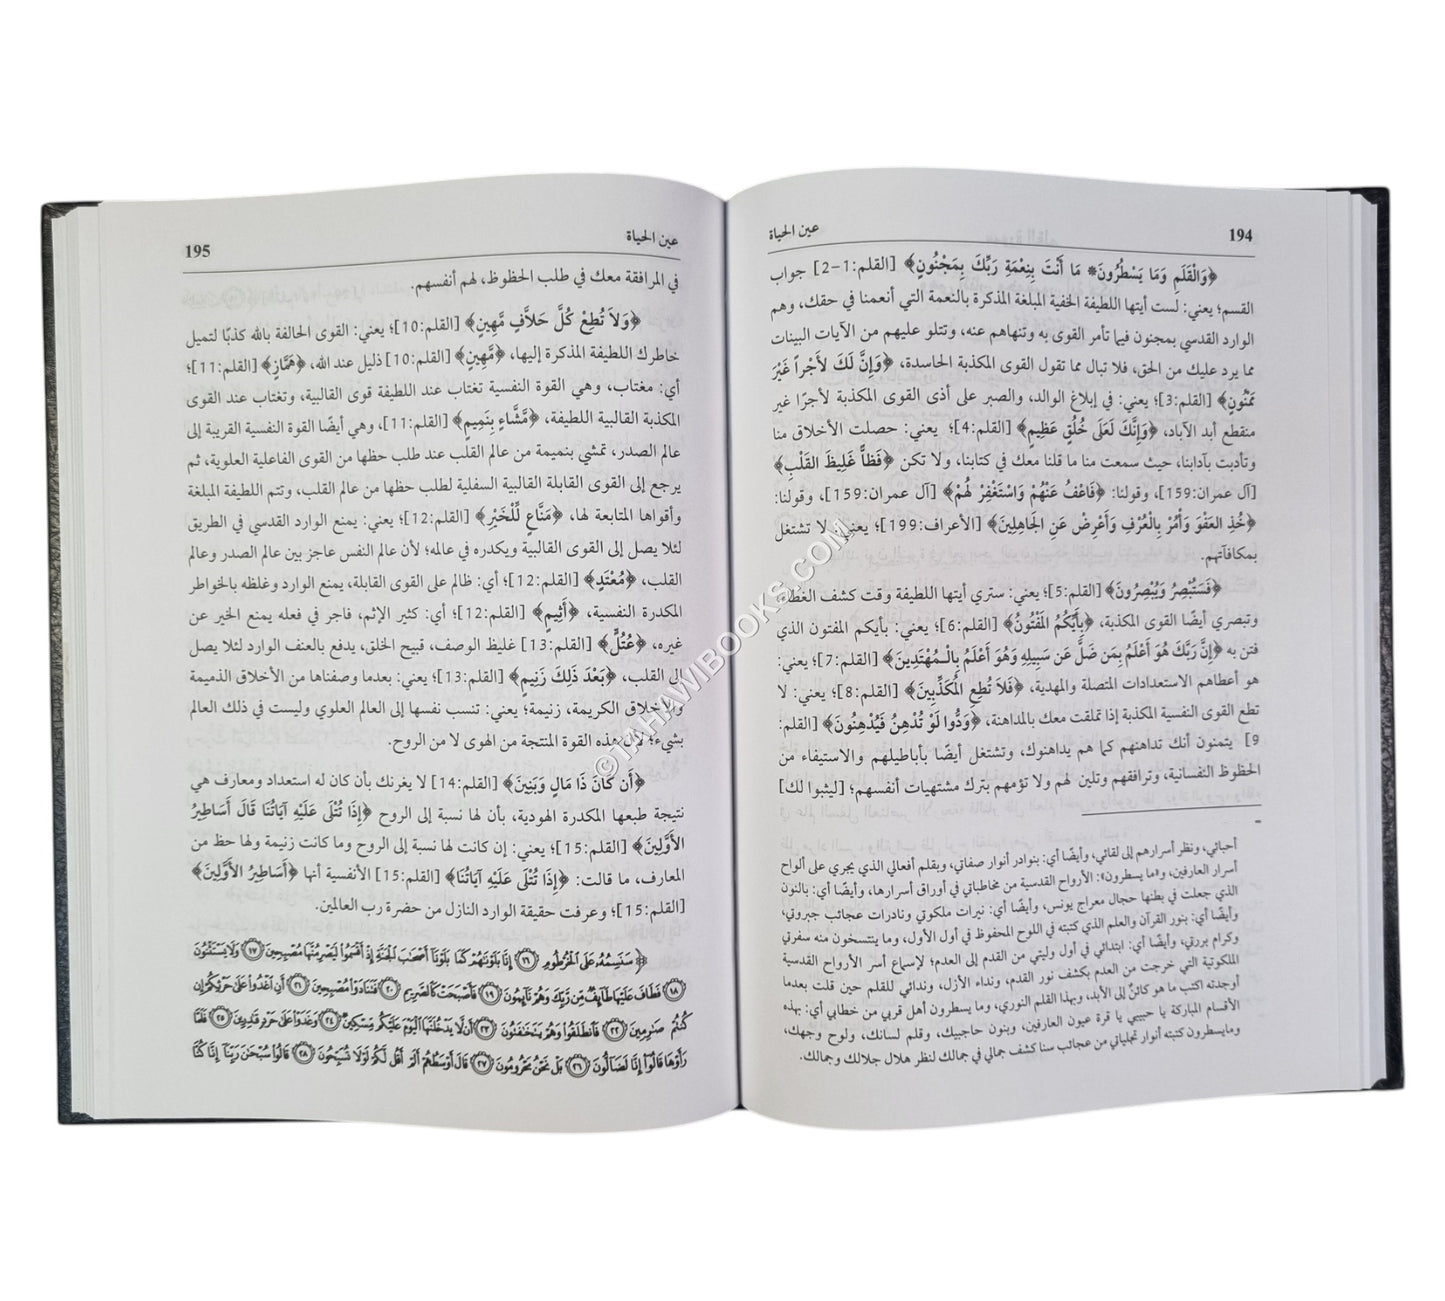 194
عين الحياة
﴿وَالْقَلَمِ وَمَا يَسْطُرُونَ* مَا أَنْتَ بِنِعْمَةِ رَبِّكَ بِمَجْنُونٍ﴾ [القلم:1-2] جواب
القسم؛ يعني: لست أيتها اللطيفة الخفية المبلغة المذكرة بالنعمة التي أنعمنا في حقك، وهم
الوارد القدسي بمجنون فيما تأمر القوى به وتنهاهم عنه، وتتلو عليهم من الآيات البينات
مما يرد عليك من الحق، فلا تبال مما تقول القوى المكذبة الحاسدة، ﴿وَإِنَّ لَكَ لأَجْراً غَيْرَ
مَمْنُونٍ﴾ [القلم:3]؛ يعني: في إبلاغ الوالد، والصبر على أذى القوى المكذبة لأجرًا غير
منقطع أبد الآباد، ﴿وَإِنَّكَ لَعَلَى خُلُقٍ عَظِيمٍ﴾ [القلم:4]؛ يعني: حصلت الأخلاق منا
وتأدبت بآدابنا، حيث سمعت منا ما قلنا معك في كتابنا، ولا تكن ﴿فَظاًّ غَلِيظَ القَلْبِ﴾
[آل عمران:159]، وقولنا: ﴿فَاعْفُ عَنْهُمْ وَاسْتَغْفِرْ لَهُمْ﴾ [آل عمران:159]، وقولنا:
﴿خُذِ العَفْوَ وَأْمُرْ بِالْعُرْفِ وَأَعْرِضْ عَنِ الجَاهِلِينَ﴾ [الأعراف:199]؛ يعني: لا تشتغل
بمكافآتهم.
﴿فَسَتُبْصِرُ وَيُبْصِرُونَ﴾ [القلم:5]؛ يعني: ستري أيتها اللطيفة وقت كشف الغطاء،
وتبصري أيضًا القوى المكذبة، ﴿بِأَيِّكُمُ المَفْتُونُ﴾ [القلم:6]؛ يعني: بأيكم المفتون الذي
فتن به ﴿إِنَّ رَبَّكَ هُوَ أَعْلَمُ بِمَن ضَلَّ عَن سَبِيلِهِ وَهُوَ أَعْلَمُ بِالْمُهْتَدِينَ﴾ [القلم:7]؛ يعني:
هو أعطاهم الاستعدادات المتصلة والمهدية، ﴿فَلاَ تُطِعِ المُكَذِّبِينَ﴾ [القلم:8]؛ يعني: لا
تطع القوى النفسية المكذبة إذا تملقت معك بالمداهنة، ﴿وَدُّوا لَوْ تُدْهِنُ فَيُدْهِنُونَ﴾ [القلم:
9] يتمنون أنك تداهنهم كما هم يداهنوك، وتشتغل أيضًا بأباطيلهم والاستيفاء من
الحظوظ النفسانية، وترافقهم وتلين لهم ولا تؤمهم بترك مشتهيات أنفسهم؛ [ليثبوا لك]
أحبائي، ونظر أسرارهم إلى لقائي، وأيضًا أي: بنوادر أنوار صفاتي، وبقلم أفعالي الذي يجري على ألواح
أسرار العارفين، و«ما يسطرون»: الأرواح القدسية من مخاطباتي في أوراق أسرارها، وأيضًا أي: بالنون
الذي جعلت في بطنها حجال معراج يونس، وأيضًا أي: نيرات ملكوتي ونادرات عجائب جبروتي،
وأيضًا أي: بنور القرآن والعلم الذي كتبته في اللوح المحفوظ في أول الأول، وما ينتسخون منه سفرتي
وكرام بررتي، وأيضًا أي: ابتدائي في أول وليتي من القدم إلى العدم؛ لإسماع أسر الأرواح القدسية
الملكوتية التي خرجت من العدم بكشف نور القدم، ونداء الأزل، وندائي للقلم حين قلت بعدما
أوجدته اكتب ما هو كائنٌ إلى الأبد، وبهذا القلم النوري، وما يسطرون أهل قربي من خطابي أي: بهذه
الأقسام المباركة يا حبيبي يا قرة عيون العارفين، وبنون حاجبيك، وقلم لسانك، ولوح وجهك،
ومايسطرون كتبته أنوار تجلياتي من عجائب سنا كشف جمالي في جمالك لنظر هلال جلالك وجمالك.
عين الحياة
195
في المرافقة معك في طلب الحظوظ، لهم أنفسهم.
﴿وَلاَ تُطِعْ كُلَّ حَلاَّفٍ مَّهِينٍ﴾ [القلم:10]؛ يعني: القوى الحالفة بالله كذبًا لتميل
خاطرك اللطيفة المذكرة إليها، ﴿مَّهِينٍ﴾ [القلم:10] ذليل عند الله، ﴿هَمَّازٍ﴾ [القلم:11]؛
أي: مغتاب، وهي القوة النفسية تغتاب عند اللطيفة قوى القالبية، وتغتاب عند القوى
المكذبة القالبية اللطيفة، ﴿مَّشَّاءٍ بِنَمِيمٍ﴾ [القلم:11]، وهي أيضًا القوة النفسية القريبة إلى
عالم الصدر، تمشي بنميمة من عالم القلب عند طلب حظها من القوى الفاعلية العلوية، ثم
يرجع إلى القوى القابلة القالبية السفلية لطلب حظها من عالم القلب، وتتم اللطيفة المبلغة
وأقواها المتابعة لها، ﴿مَنَّاعٍ لِّلْخَيْرِ﴾ [القلم:12]؛ يعني: يمنع الوارد القدسي في الطريق
لئلا يصل إلى القوى القالبية ويكدره في عالمه؛ لأن عالم النفس عاجز بين عالم الصدر وعالم
القلب، ﴿مُعْتَدٍ﴾ [القلم:12]؛ أي: ظالم على القوى القابلة، يمنع الوارد وغلظه بالخواطر
المكدرة النفسية، ﴿أَثِيمٍ﴾ [القلم:12]؛ أي: كثير الإثم، فاجر في فعله يمنع الخير عن
غيره، ﴿عُتُلٍّ﴾ [القلم:13] غليظ الوصف، قبيح الخلق، يدفع بالعنف الوارد لئلا يصل
إلى القلب، ﴿بَعْدَ ذَلِكَ زَنِيمٍ﴾ [القلم:13]؛ يعني: بعدما وصفناها من الأخلاق الذميمة
والأخلاق الكريمة، زنيمة؛ يعني: تنسب نفسها إلى العالم العلوي وليست في ذلك العالم
بشيء؛ لأن هذه القوة المنتجة من الهوى لا من الروح.
﴿أَن كَانَ ذَا مَالٍ وَبَنِينَ﴾ [القلم:14] لا يغرنك بأن كان له استعداد ومعارف هي
نتيجة طبعها المكدرة الهودية، بأن لها نسبة إلى الروح ﴿إِذَا تُتْلَى عَلَيْهِ آيَاتُنَا قَالَ أَسَاطِيرُ
الأَوَّلِينَ﴾ [القلم:15]؛ يعني: إن كانت لها نسبة إلى الروح وما كانت زنيمة ولها حظ من
المعارف، ما قالت: ﴿إِذَا تُتْلَى عَلَيْهِ آيَاتُنَا﴾ [القلم:15] الأنفسية أنها ﴿أَسَاطِيرُ الأَوَّلِينَ﴾
[القلم:15]؛ وعرفت حقيقة الوارد النازل من حضرة رب العالمين.
﴿سَنَسِمُهُ عَلَى الْخُرْطُومِ ١٦ إِنَّا بَلَوْنَاهُمْ كَمَا بَلَوْنَا أَصْحَابَ الْجَنَّةِ إِذْ أَقْسَمُوا لَيَصْرِمُنَّهَا مُصْبِحِينَ ١٧ وَلَا يَسْتَثْنُونَ
١٨ فَطَافَ عَلَيْهَا طَائِفٌ مِّن رَّبِّكَ وَهُمْ نَائِمُونَ ١٩ فَأَصْبَحَتْ كَالصَّرِيمِ ٢٠ فَتَنَادَوْا مُصْبِحِينَ ٢١ أَنِ اغْدُوا عَلَى حَرْثِكُمْ إِن
كُنتُمْ صَارِمِينَ ٢٢ فَانطَلَقُوا وَهُمْ يَتَخَافَتُونَ ٢٣ أَن لَّا يَدْخُلَنَّهَا الْيَوْمَ عَلَيْكُم مِّسْكِينٌ ٢٤ وَغَدَوْا عَلَى حَرْدٍ قَادِرِينَ ٢٥ فَلَمَّا
رَأَوْهَا قَالُوا إِنَّا لَضَالُّونَ ٢٦ بَلْ نَحْنُ مَحْرُومُونَ ٢٧ قَالَ أَوْسَطُهُمْ أَلَمْ أَقُل لَّكُمْ لَوْلَا تُسَبِّحُونَ ٢٨ قَالُوا سُبْحَانَ رَبِّنَا إِنَّا كُنَّا
©TAHAWIBOOKS.COM